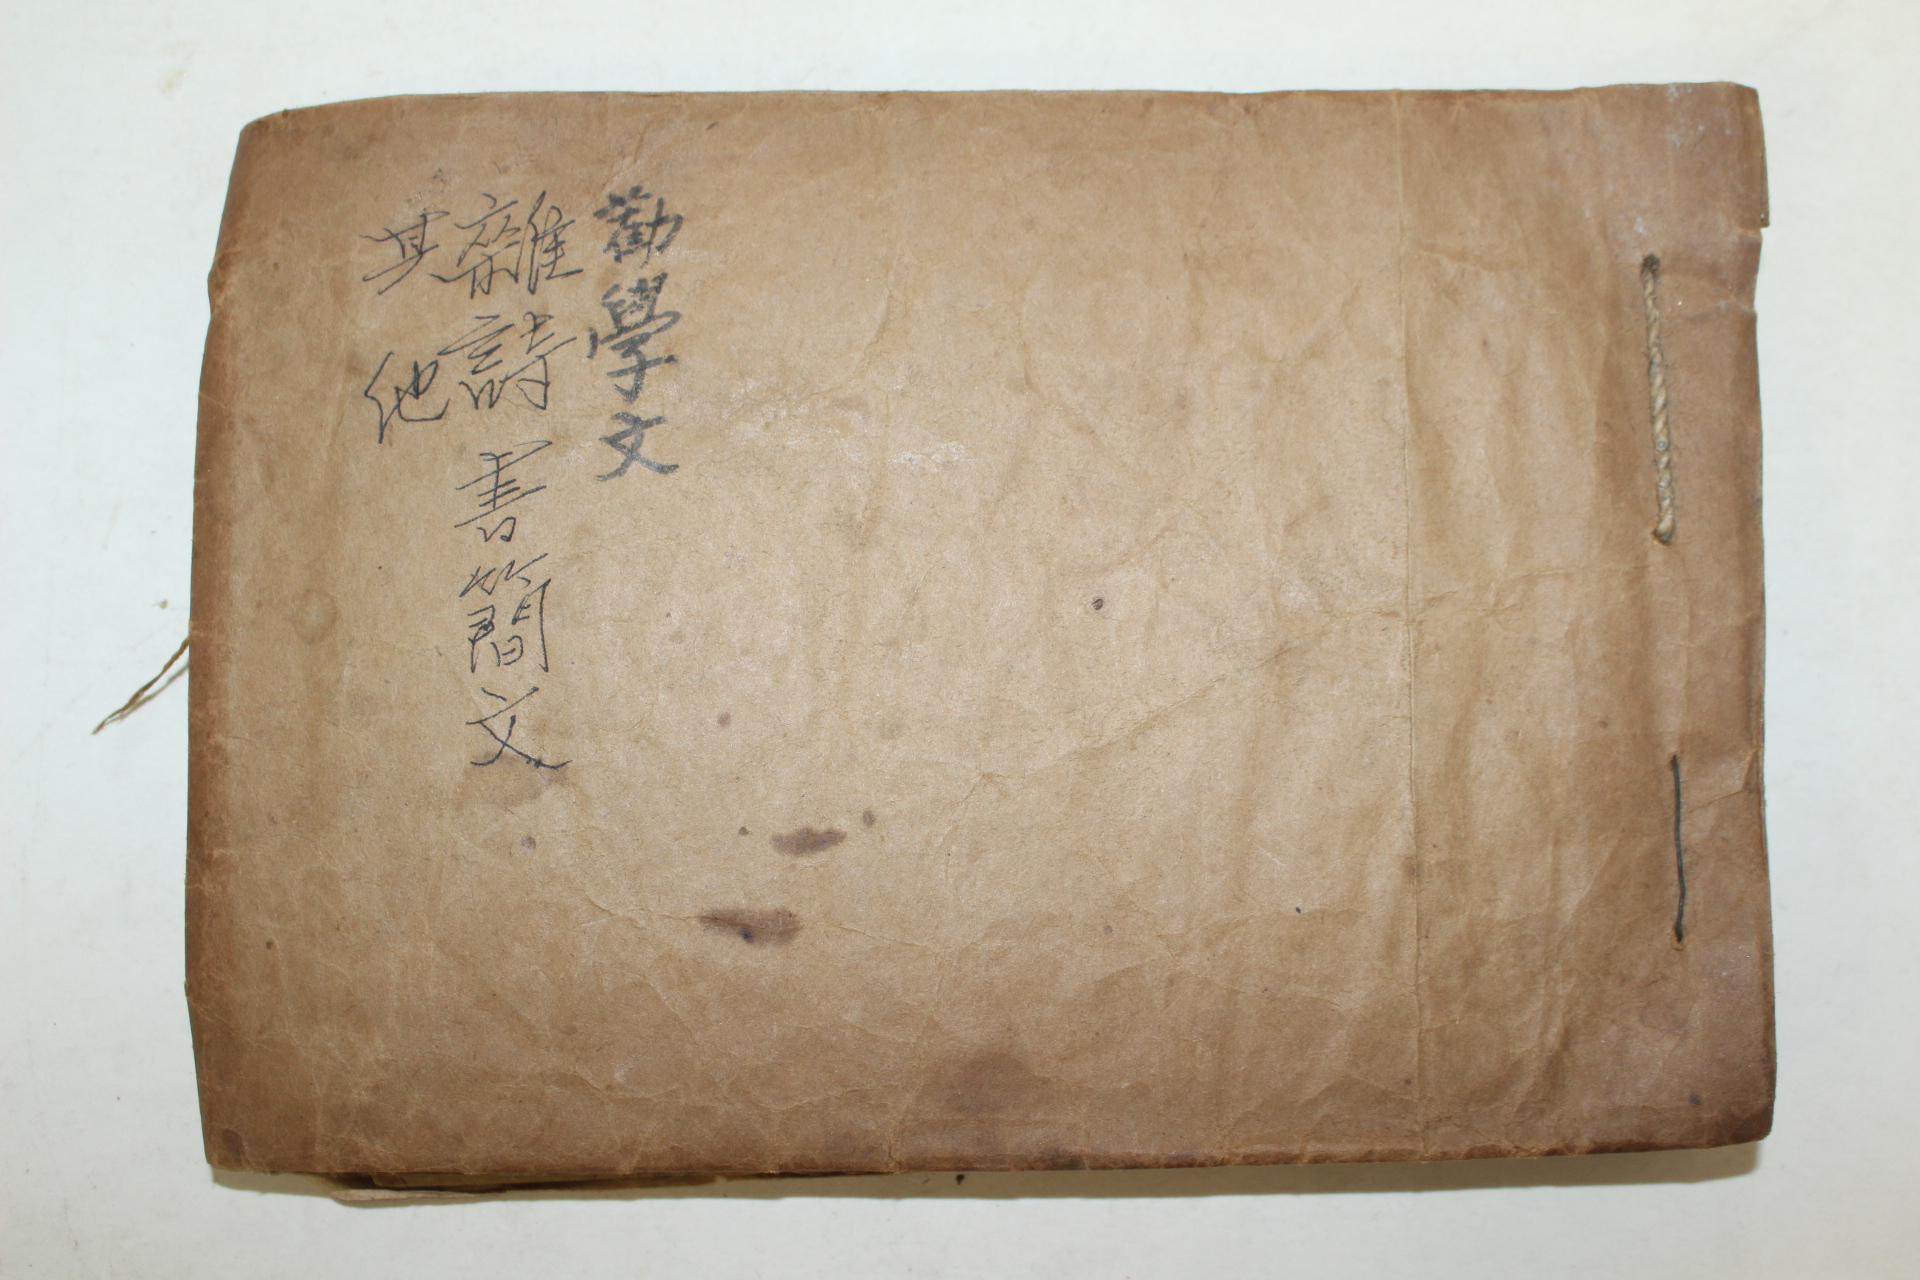 勸學文
雜詩書簡文
其他